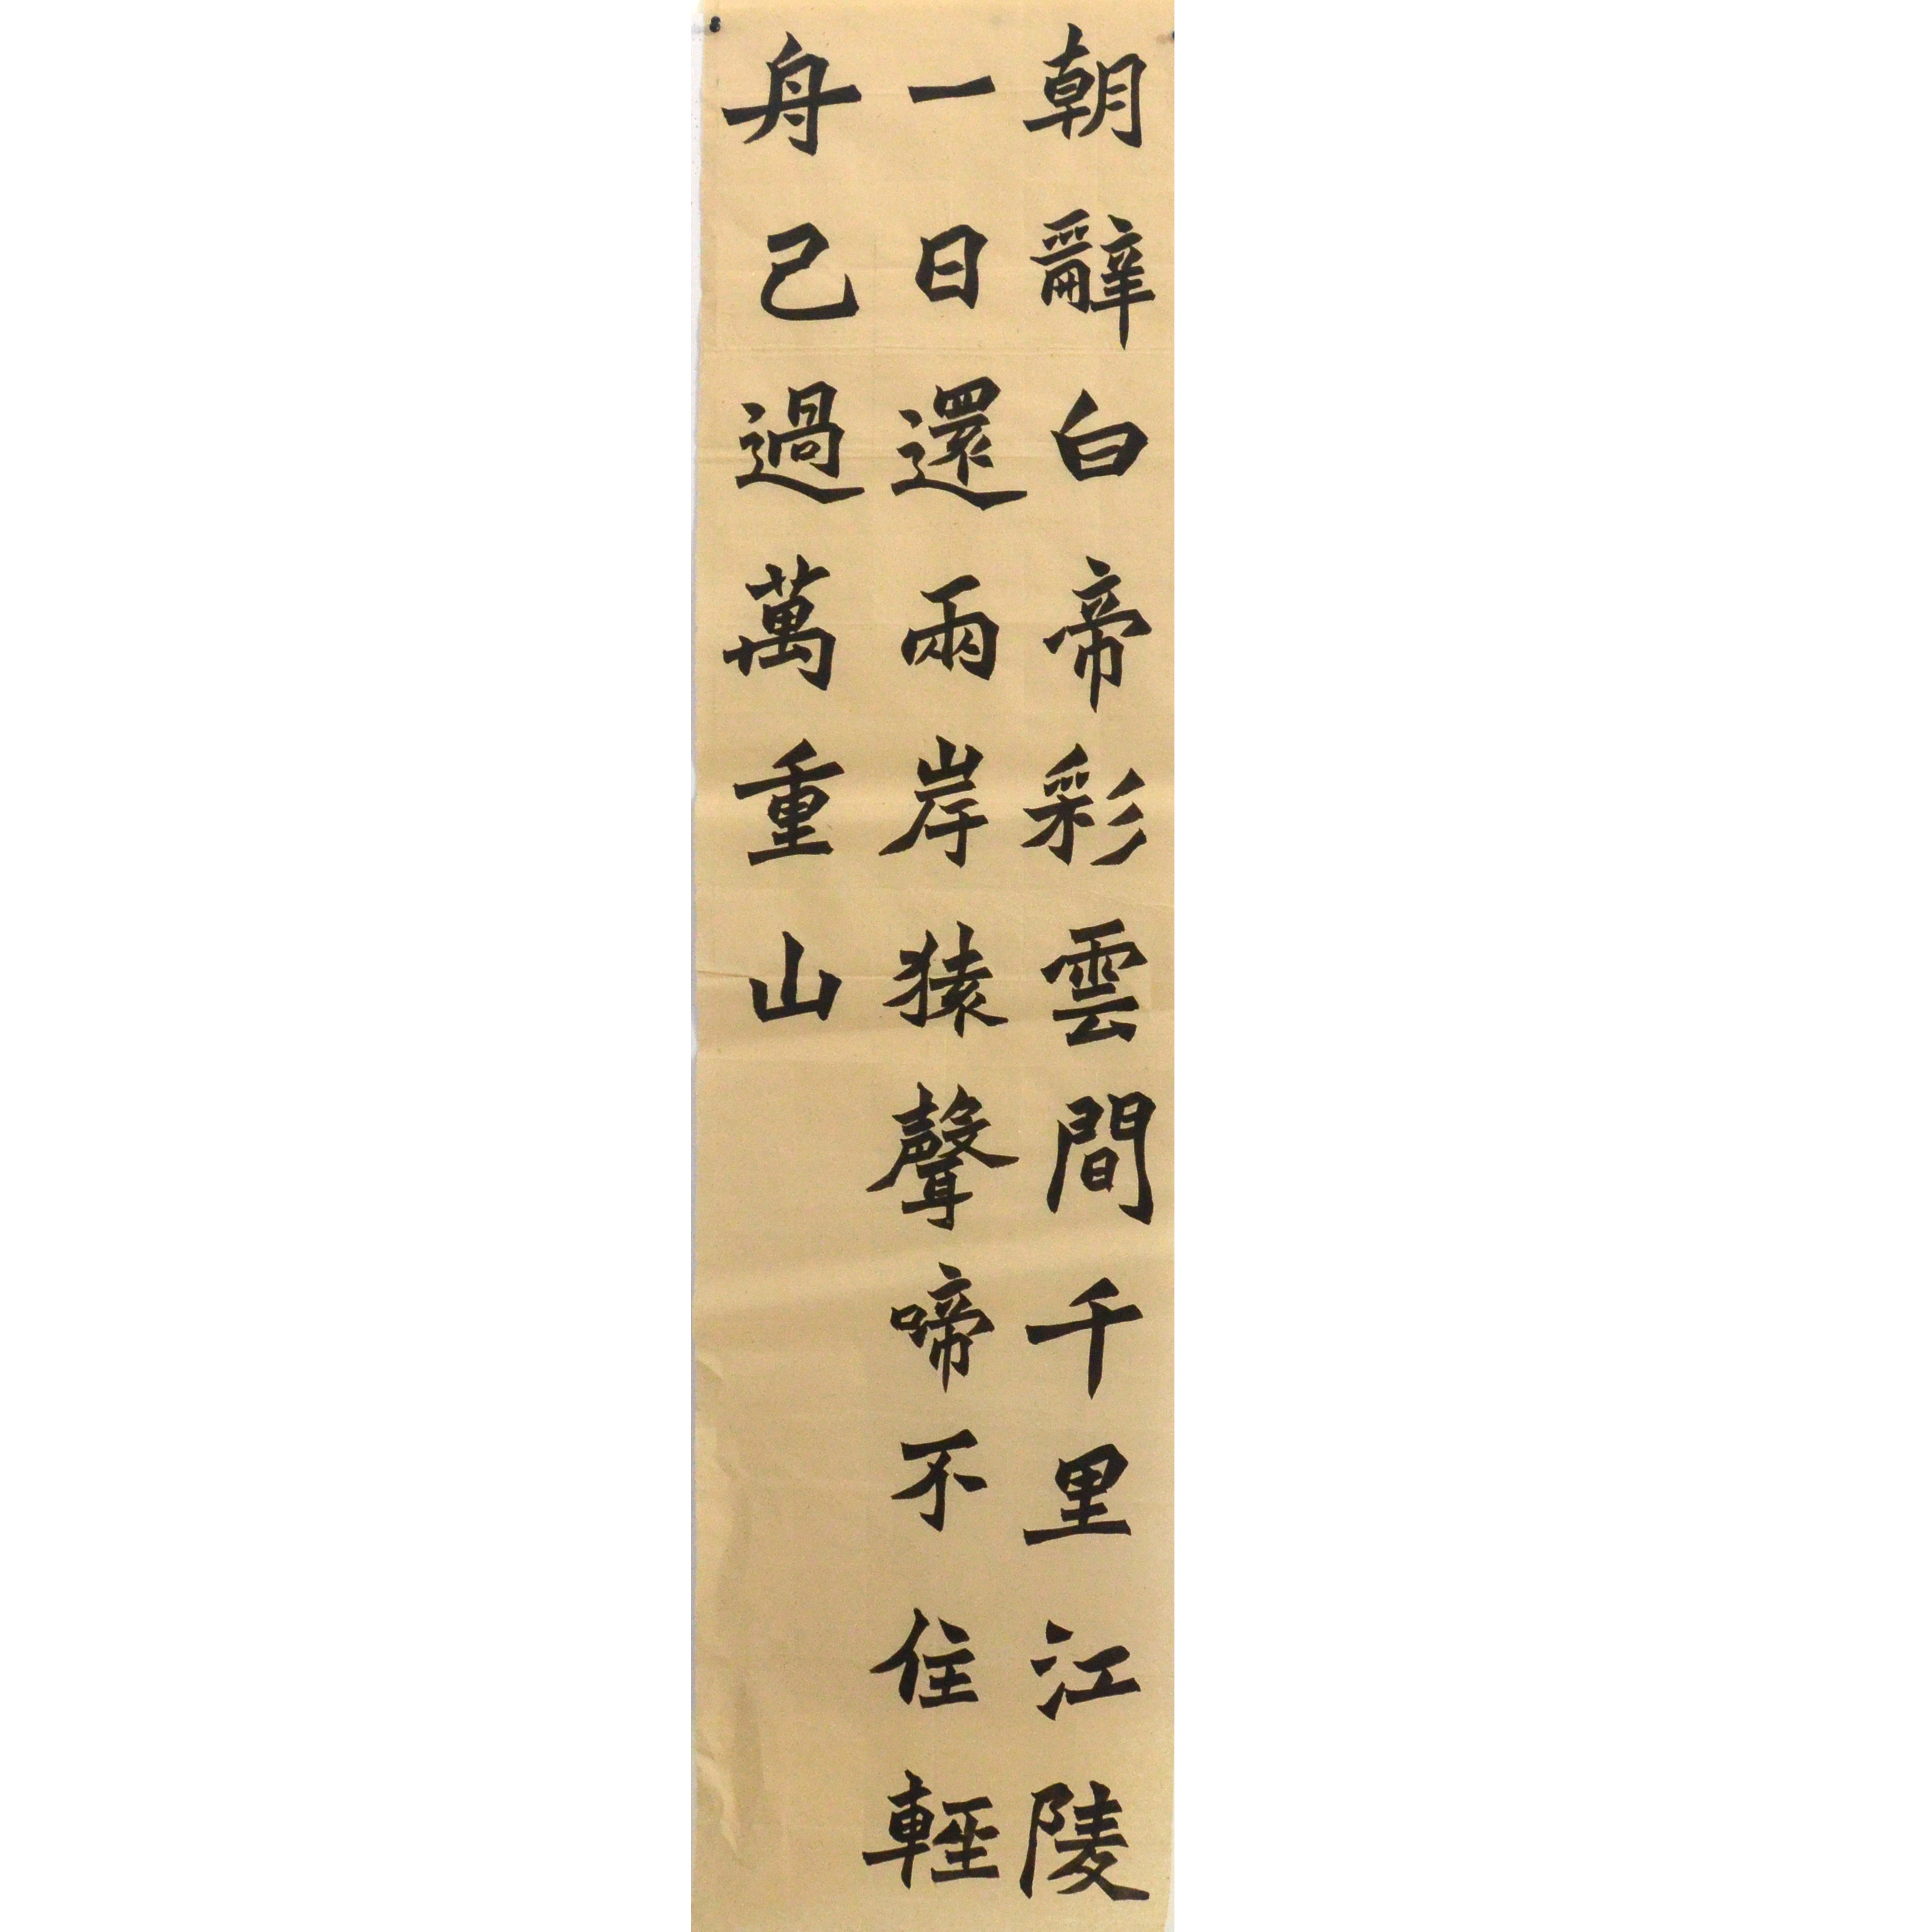 朝辭白帝彩雲間千里江陵
一日還兩岸猿聲啼不住輕
舟己過萬重山